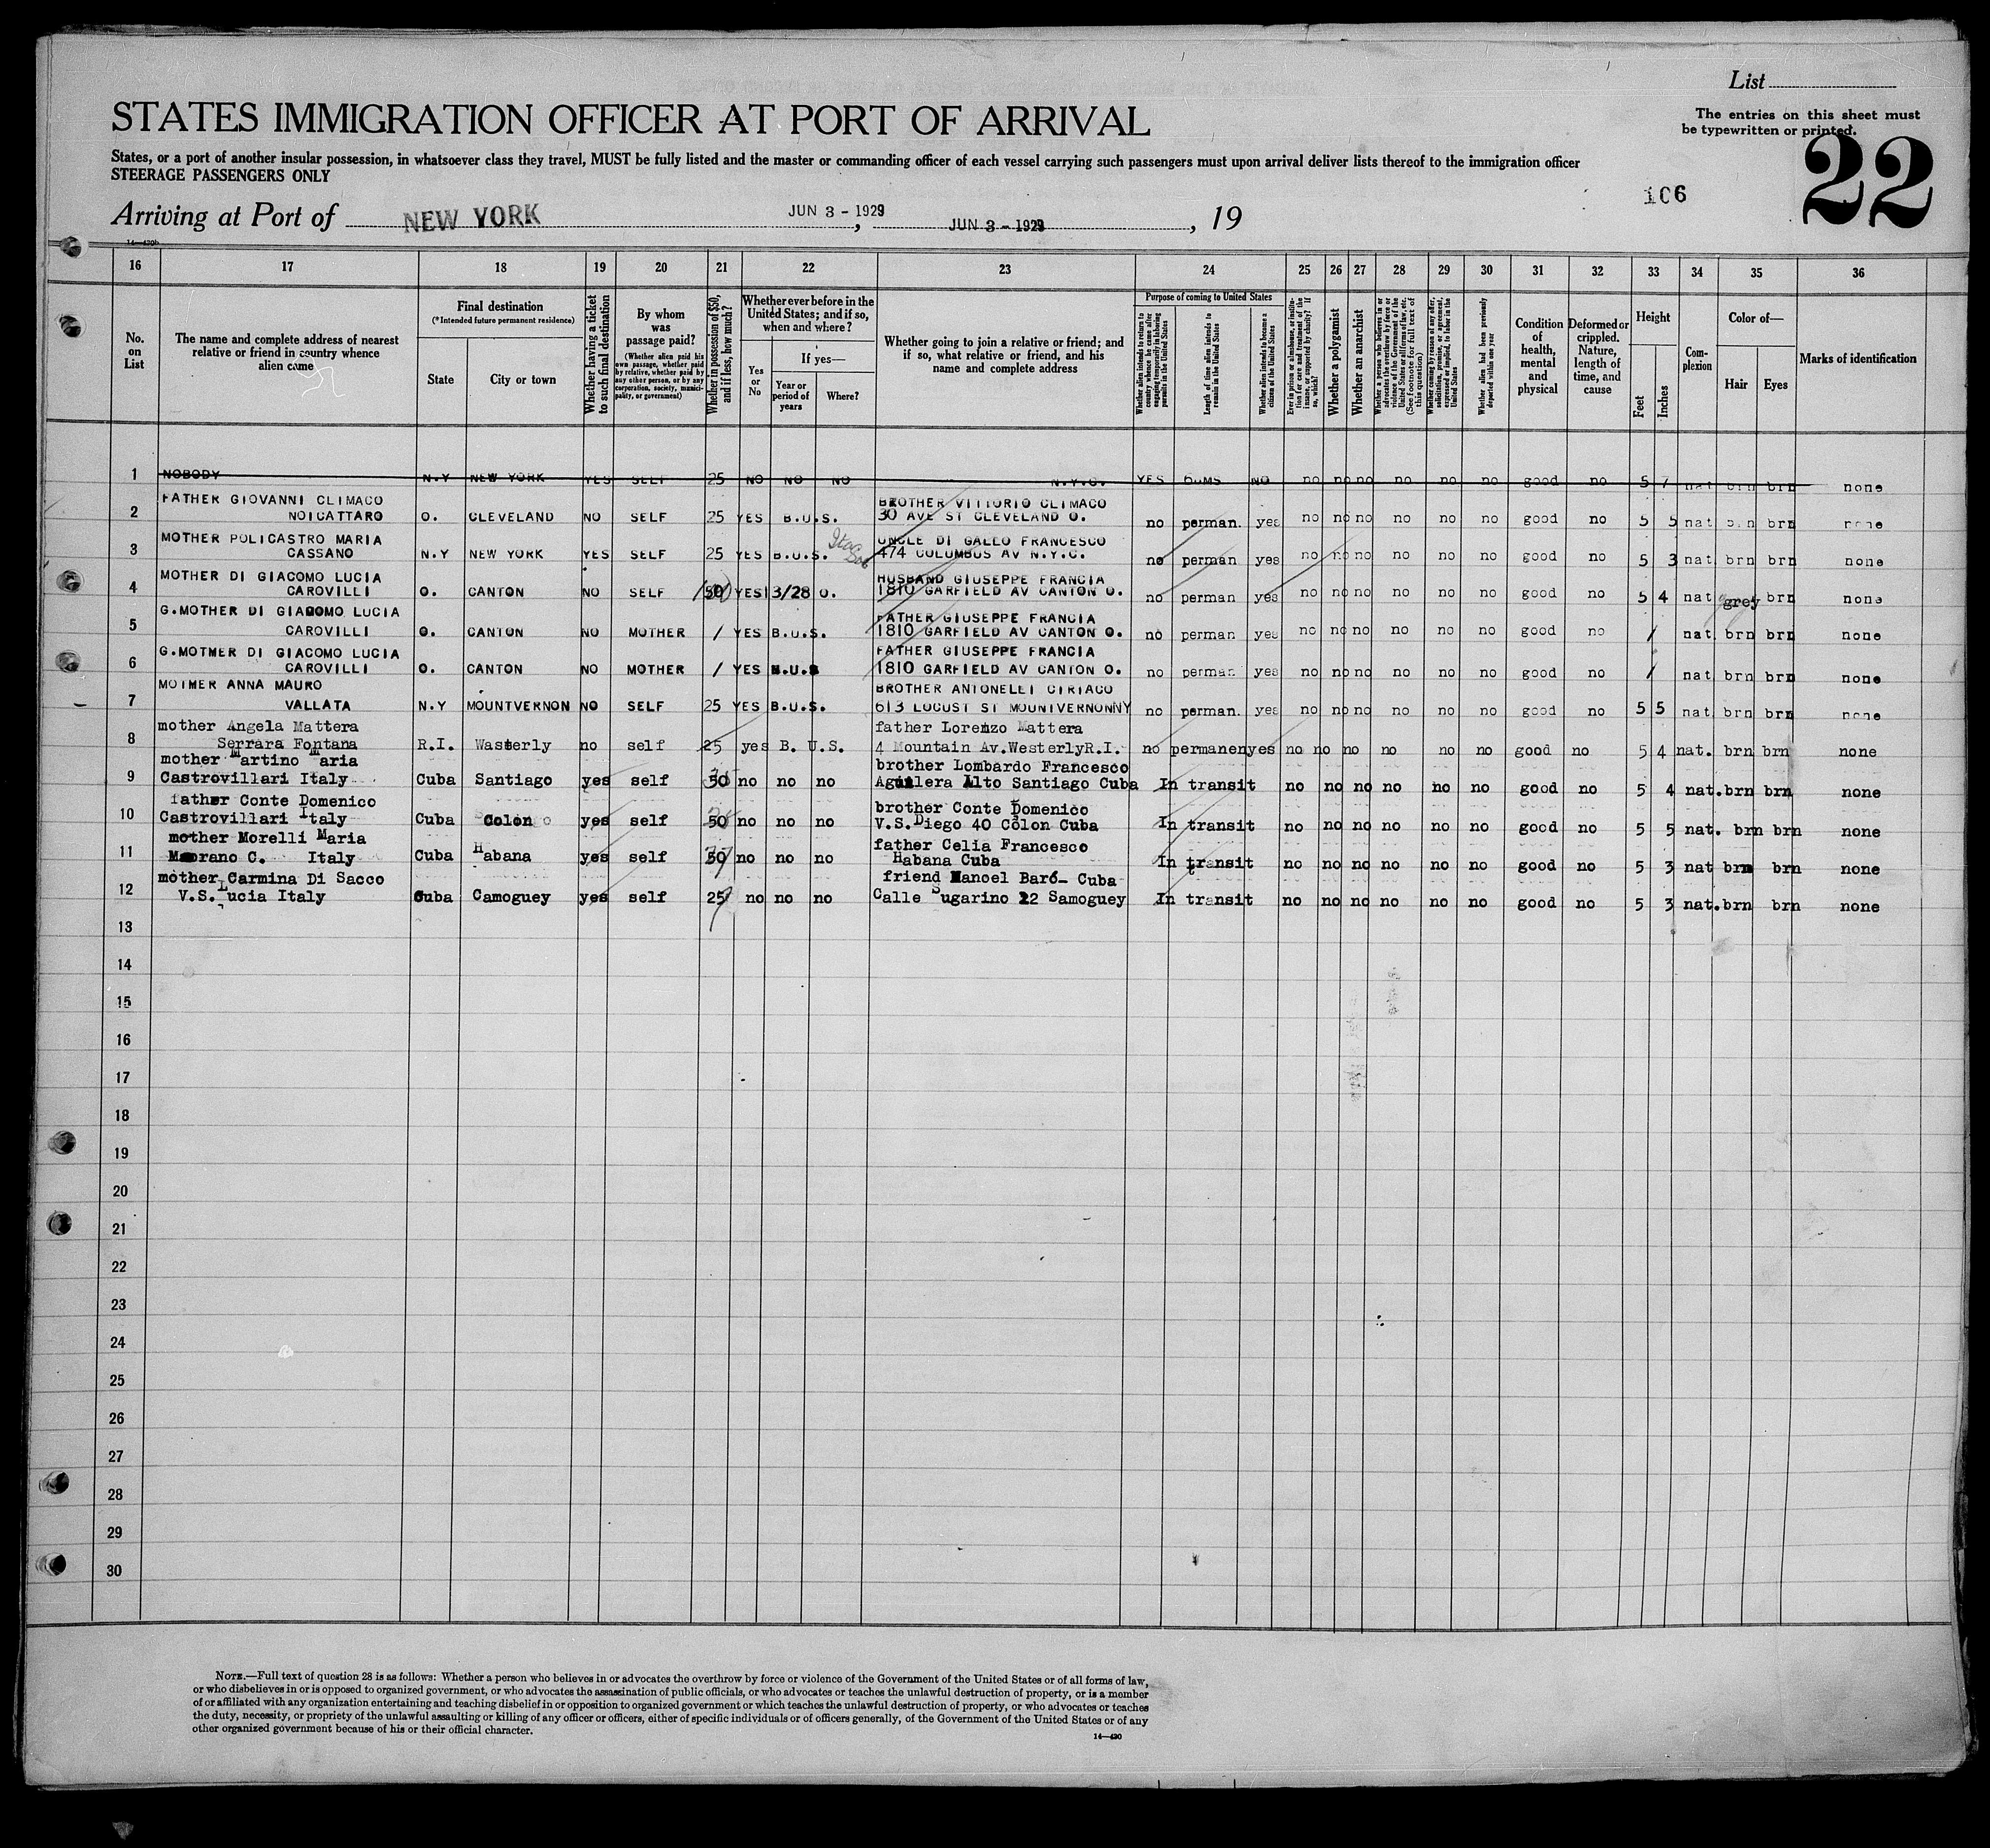 List
The entries on this sheet must
be typewritten or printed.
STATES IMMIGRATION OFFICER AT PORT OF ARRIVAL
22
States, or a port of another insular possession, in whatsoever class they travel, MUST be fully listed and the master or commanding officer of each vessel carrying such passengers must upon arrival deliver lists thereof to the immigration officer
STEERAGE PASSENGERS ONLY
106
Arriving at Port of NEW YORK, JUN 3 - 1929 JUN 3 - 1929, 19
14—420b
16 17 18 19 20 21 22 23 24 25 26 27 28 29 30 31 32 33 34 35 36
No. on List
The name and complete address of nearest relative or friend in country whence alien came
Final destination
(*Intended future permanent residence)
State
City or town
Whether having a ticket to such final destination
By whom was passage paid?
(Whether alien paid his own passage, whether paid by relative, whether paid by any other person, or by any corporation, society, municipality, or government)
Whether in possession of $50, and if less, how much?
Whether ever before in the United States; and if so, when and where?
Yes or No
If yes—
Year or period of years
Where?
Whether going to join a relative or friend; and if so, what relative or friend, and his name and complete address
Purpose of coming to United States
Whether alien intends to return to country whence he came after engaging temporarily in laboring pursuits in the United States
Length of time alien intends to remain in the United States
Whether alien intends to become a citizen of the United States
Ever in prison or almshouse, or institution for care and treatment of the insane, or supported by charity? If so, which?
Whether a polygamist
Whether an anarchist
Whether a person who believes in or advocates the overthrow by force or violence of the Government of the United States or all forms of law, etc. (See footnote for full text of this question)
Whether coming by reason of any offer, solicitation, promise, or agreement, expressed or implied, to labor in the United States
Whether alien had been previously deported within one year
Condition of health, mental and physical
Deformed or crippled. Nature, length of time, and cause
Height
Feet
Inches
Complexion
Color of—
Hair
Eyes
Marks of identification
1 NOBODY N.Y NEW YORK YES SELF 25 NO NO NO N.Y.C. YES 6 MS NO no no no no no no good no 5 7 nat brn brn none
FATHER GIOVANNI CLIMACO BROTHER VITTORIO CLIMACO
2 NOICATTARO O. CLEVELAND NO SELF 25 YES B.U.S. 30 AVE ST CLEVELAND O. no perman. yes no no no no no no good no 5 5 nat brn brn none
MOTHER POLICASTRO MARIA UNCLE DI GALLO FRANCESCO
3 CASSANO N.Y NEW YORK YES SELF 25 YES B.U.S. 474 COLUMBUS AV N.Y.C. no perman yes no no no no no no good no 5 3 nat brn brn none
MOTHER DI GIACOMO LUCIA HUSBAND GIUSEPPE FRANCIA
4 CAROVILLI O. CANTON NO SELF 50 YES 13/28 O. 1810 GARFIELD AV CANTON O. no perman yes no no no no no no good no 5 4 nat grey brn none
G.MOTHER DI GIACOMO LUCIA FATHER GIUSEPPE FRANCIA
5 CAROVILLI O. CANTON NO MOTHER / YES B.U.S. 1810 GARFIELD AV CANTON O. no perman yes no no no no no no good no / nat brn brn none
G.MOTMER DI GIACOMO LUCIA FATHER GIUSEPPE FRANCIA
6 CAROVILLI O. CANTON NO MOTHER / YES B.U.S 1810 GARFIELD AV CANTON O. no perman. yes no no no no no no good no / nat brn brn none
MOTMER ANNA MAURO BROTHER ANTONELLI CIRIACO
7 VALLATA N.Y MOUNTVERNON NO SELF 25 YES B.U.S. 613 LOCUST ST MOUNTVERNONNY no perman. yes no no no no no no good no 5 5 nat brn brn none
mother Angela Mattera father Lorenzo Mattera
8 Serrara Fontana R.I. Wasterly no self 25 yes B. U.S. 4 Mountain Av.WesterlyR.I. no permanenyes no no no no no no good no 5 4 nat. brn brn none
mother Martino Maria brother Lombardo Francesco
9 Castrovillari Italy Cuba Santiago yes self 50 no no no Aguilera Alto Santiago Cuba In transit no no no no no no good no 5 4 nat.brn brn none
father Conte Domenico brother Conte Domenico
10 Castrovillari Italy Cuba Colon yes self 50 no no no V.S.Diego 40 Colon Cuba In transit no no no no no no good no 5 5 nat. brn brn none
mother Morelli Maria father Celia Francesco
11 Morano C. Italy Cuba Habana yes self 50 no no no Habana Cuba In transit no no no no no no good no 5 3 nat brn brn none
mother Carmina Di Sacco friend Manoel Baró- Cuba
12 V.S.Lucia Italy Cuba Camoguey yes self 25 no no no Calle Sugarino 22 Samoguey In transit no no no no no no good no 5 3 nat.brn brn none
13
14
15
16
17
18
19
20
21
22
23
24
25
26
27
28
29
30
NOTE.—Full text of question 28 is as follows: Whether a person who believes in or advocates the overthrow by force or violence of the Government of the United States or of all forms of law,
or who disbelieves in or is opposed to organized government, or who advocates the assassination of public officials, or who advocates or teaches the unlawful destruction of property, or is a member
of or affiliated with any organization entertaining and teaching disbelief in or opposition to organized government or which teaches the unlawful destruction of property, or who advocates or teaches
the duty, necessity, or propriety of the unlawful assaulting or killing of any officer or officers, either of specific individuals or of officers generally, of the Government of the United States or of any
other organized government because of his or their official character.
14—420